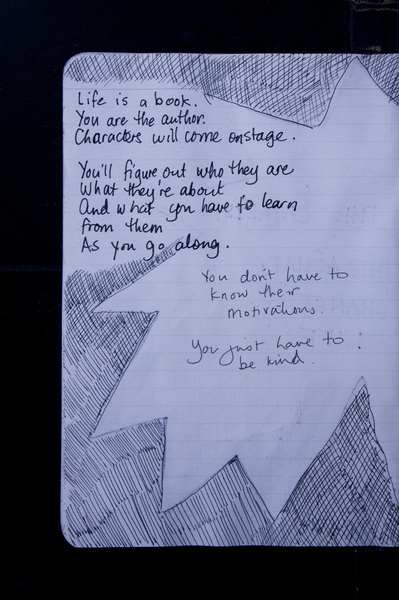 Life is a book.
You are the author.
Characters will come onstage.
You'll figure out who they are
What they're about
And what you have to learn
from them
As you go along.
You don't have to
know their
motivations.
You just have to :
be kind.